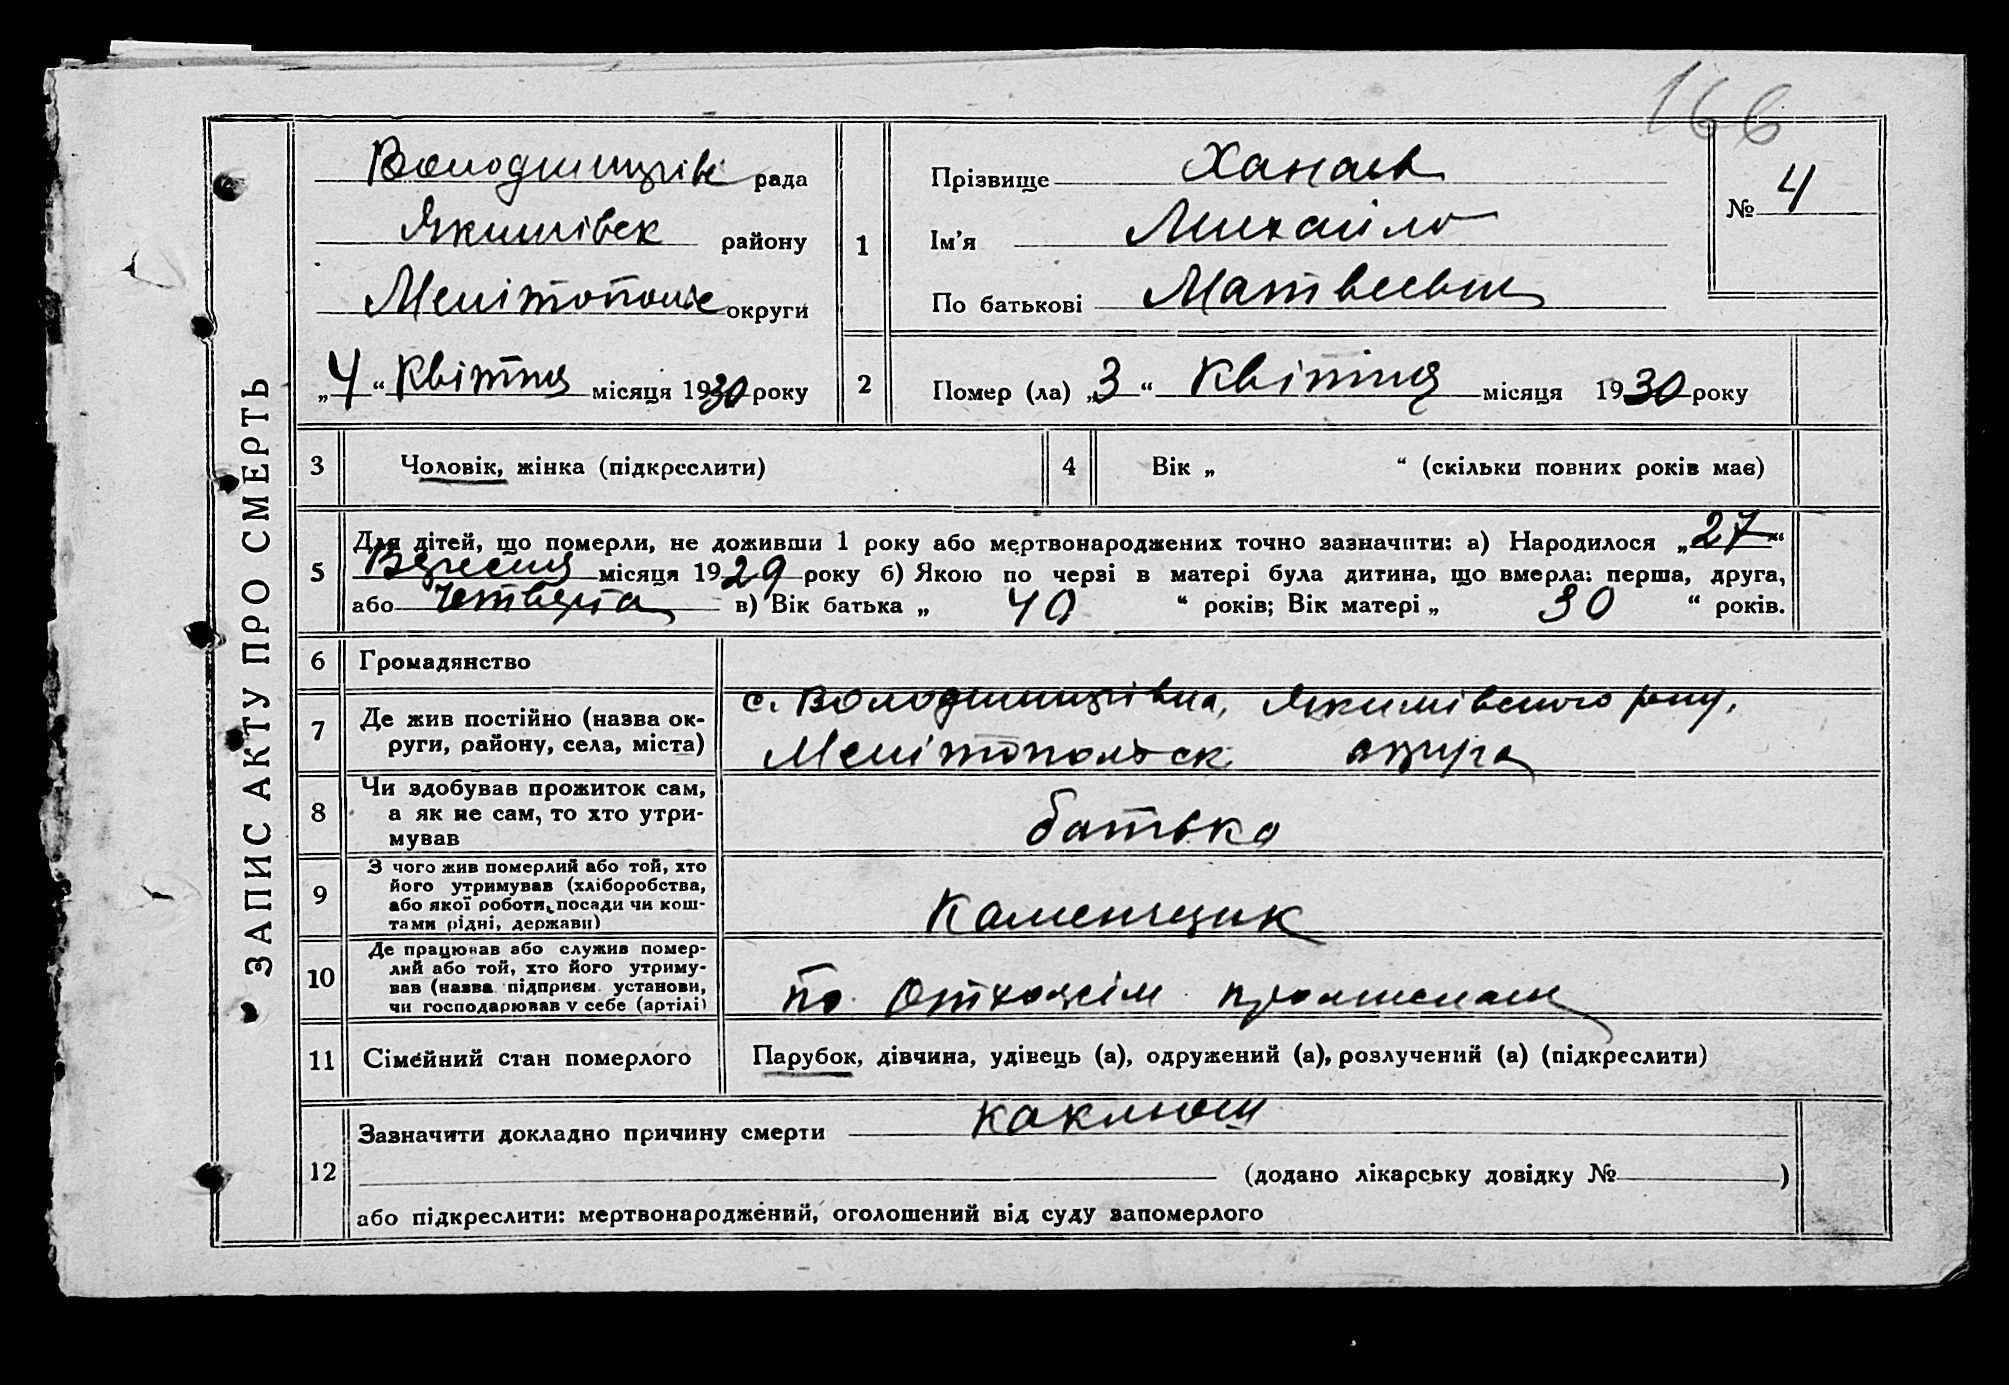 166
ЗАПИС АКТУ ПРО СМЕРТЬ
Володимирів рада
Якимівск району
Мелітопольс округи
„4“ Квітня місяця 1930 року
1
Прізвище Ханаев
Ім'я Михайло
По батькові Матвеевич
№ 4
2
Помер (ла) „3“ Квітня місяця 1930 року
3 Чоловік, жінка (підкреслити)
4 Вік „ “ (скільки повних років має)
5 Для дітей, що померли, не доживши 1 року або мертвонароджених точно зазначити: а) Народилося „27“
Вересня місяця 1929 року б) Якою по черзі в матері була дитина, що вмерла: перша, друга,
або четверта в) Вік батька „ 40 “ років; Вік матері „ 30 “ років.
6 Громадянство
7 Де жив постійно (назва ок-
руги, району, села, міста)
с. Володимирівка, Якимівского рну,
Мелітопольск округа
8 Чи здобував прожиток сам,
а як не сам, то хто утри-
мував
батько
9 З чого жив померлий або той, хто
його утримував (хліборобства,
або якої роботи, посади чи кош-
тами рідні, держави)
Каменщик
10 Де працював або служив помер-
лий або той, хто його утриму-
вав (назва підприєм. установи,
чи господарював у себе (артілі)
по Отхожім промислам
11 Сімейний стан померлого
Парубок, дівчина, удівець (а), одружений (а), розлучений (а) (підкреслити)
12 Зазначити докладно причину смерти коклюш
(додано лікарську довідку № )
або підкреслити: мертвонароджений, оголошений від суду запомерлого